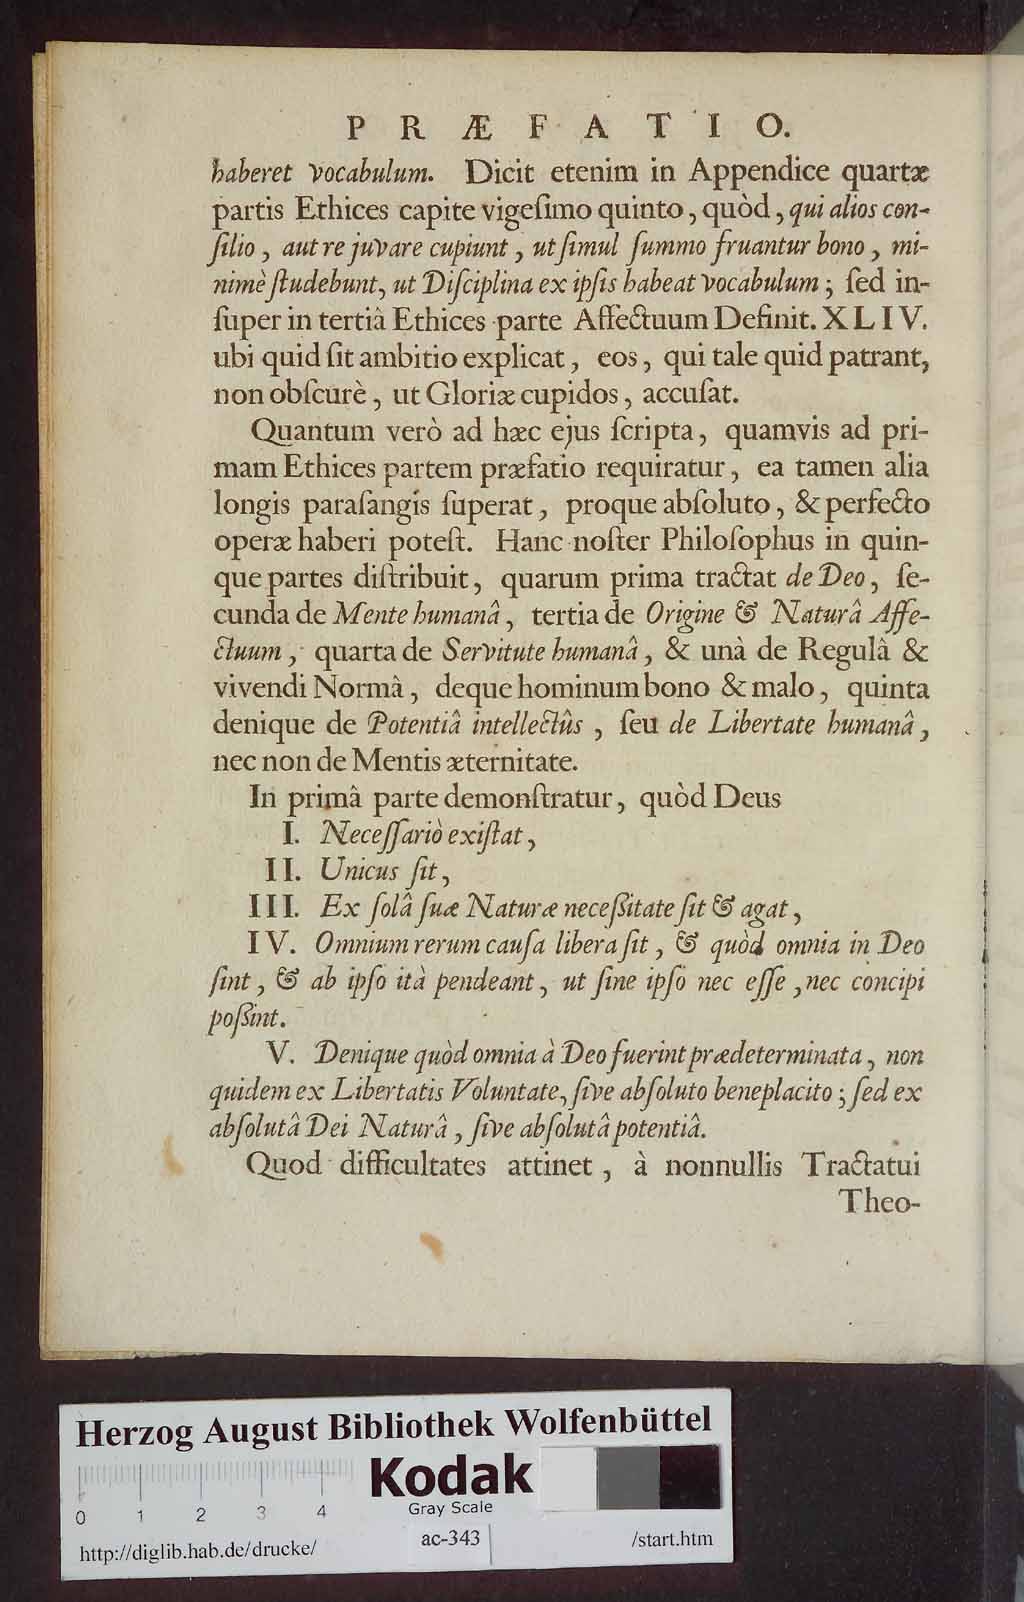 PRÆFATIO.
haberet vocabulum. Dicit etenim in Appendice quartæ
partis Ethices capite vigeſimo quinto, quòd, qui alios con-
ſilio, aut re juvare cupiunt, ut ſimul ſummo fruantur bono, mi-
nimè ſtudebunt, ut Diſciplina ex ipſis habeat vocabulum; ſed in-
ſuper in tertiâ Ethices parte Affectuum Definit. XLIV.
ubi quid ſit ambitio explicat, eos, qui tale quid patrant,
non obſcurè, ut Gloriæ cupidos, accuſat.
Quantum verò ad hæc ejus ſcripta, quamvis ad pri-
mam Ethices partem præfatio requiratur, ea tamen alia
longis paraſangis ſuperat, proque abſoluto, & perfecto
operæ haberi poteſt. Hanc noſter Philoſophus in quin-
que partes diſtribuit, quarum prima tractat de Deo, ſe-
cunda de Mente humanâ, tertia de Origine & Naturâ Affe-
ctuum, quarta de Servitute humanâ, & unà de Regulâ &
vivendi Normâ, deque hominum bono & malo, quinta
denique de Potentiâ intellectûs, ſeu de Libertate humanâ,
nec non de Mentis æternitate.
In primâ parte demonſtratur, quòd Deus
I. Neceſſariò exiſtat,
II. Unicus ſit,
III. Ex ſolâ ſuæ Naturæ neceßitate ſit & agat,
IV. Omnium rerum cauſa libera ſit, & quòd omnia in Deo
ſint, & ab ipſo ità pendeant, ut ſine ipſo nec eſſe, nec concipi
poßint.
V. Denique quòd omnia à Deo fuerint prædeterminata, non
quidem ex Libertatis Voluntate, ſive abſoluto beneplacito; ſed ex
abſolutâ Dei Naturâ, ſive abſolutâ potentiâ.
Quod difficultates attinet, à nonnullis Tractatui
Theo-
Herzog August Bibliothek Wolfenbüttel
Kodak
Gray Scale
0 1 2 3 4
http://diglib.hab.de/drucke/ ac-343 /start.htm